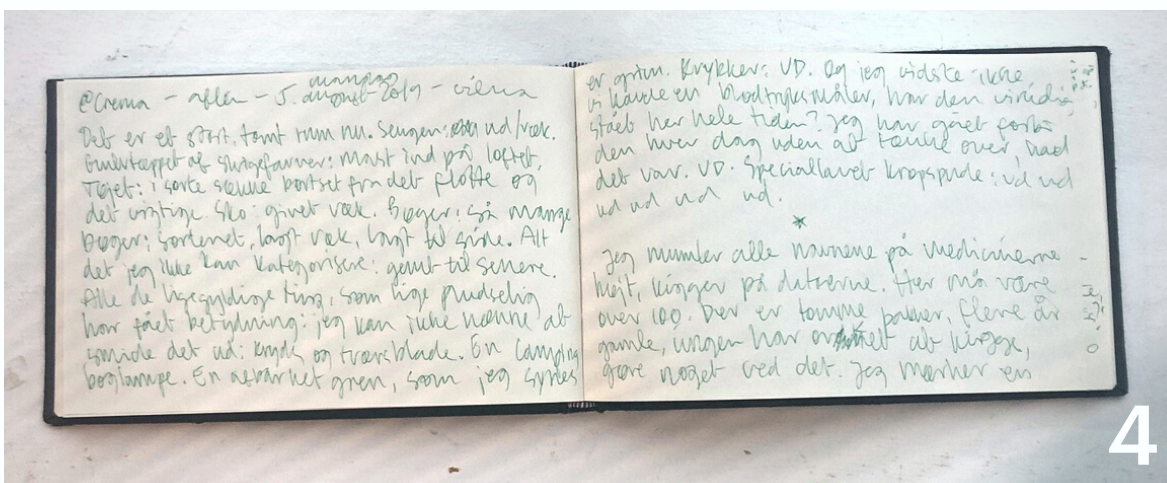 mandag
@Crema – aften – 5. august 2019 –
Det er et stort, tomt rum nu. Sengen: ud/væk.
Gulvtæppet af slangefarver: mast ind på loftet.
Tøjet: i sorte sække bortset fra det flotte og
det vigtige. Sko: givet væk. Bøger: så mange
bøger: sorteret, lagt væk, lagt til side. Alt
det jeg ikke kan kategorisere: gemt til senere.
Alle de ligegyldige ting, som lige pludselig
har fået betydning: jeg kan ikke nænne at
smide det ud: kryds og tværsblade. En camping
boglampe. En afbarket gren, som jeg synes
er grim. Krykker: UD. Og jeg vidste ikke
vi havde en blodtryksmåler, har den
stået her hele tiden? Jeg har gået forbi
den hver dag uden at tænke over, hvad
det var. UD. Speciallavet kropspude: ud ud
ud ud ud ud.
*
Jeg mumler alle navnene på medicinerne
højt, kigger på datoerne. Her må være
over 100. Der er tomme pakker, flere år
gamle, ingen har at kigge,
gøre noget ved det. Jeg mærker en
4